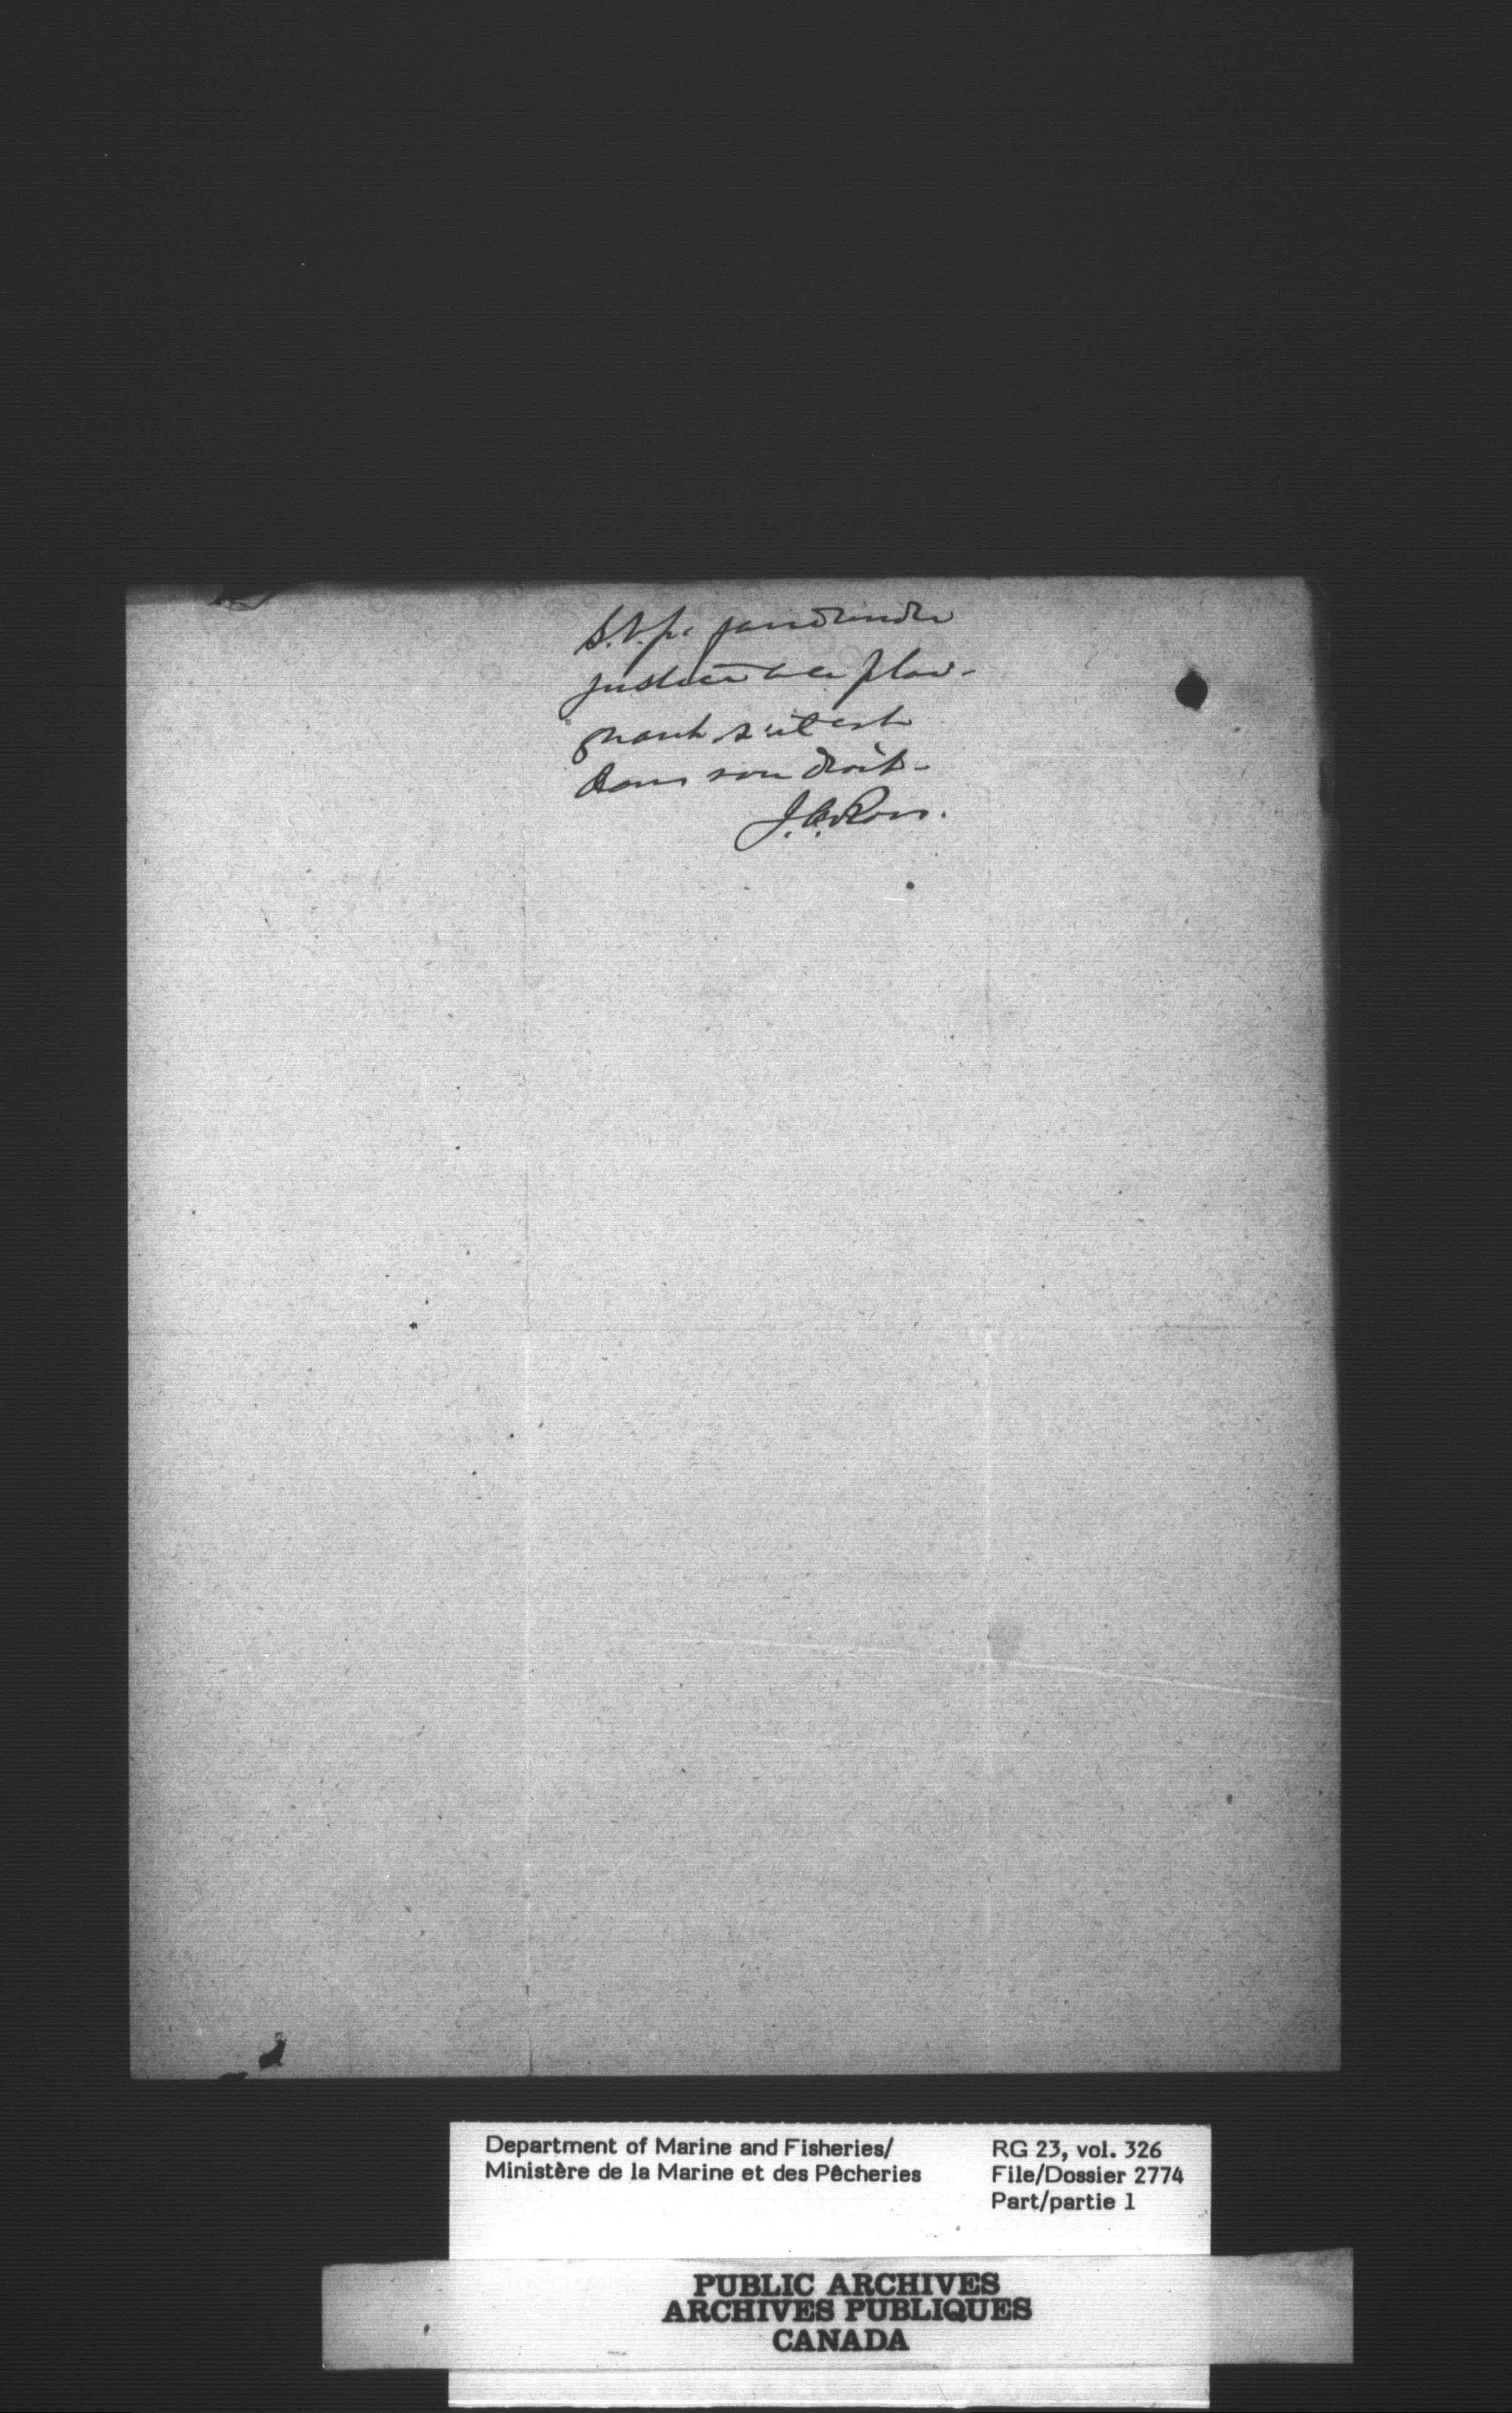 S.V.p. faire rendre
justice à ce plai-
gnant s'il est
dans son droit -
J. A. Ross.
Department of Marine and Fisheries/
Ministère de la Marine et des Pêcheries
RG 23, vol. 326
File/Dossier 2774
Part/partie 1
PUBLIC ARCHIVES
ARCHIVES PUBLIQUES
CANADA